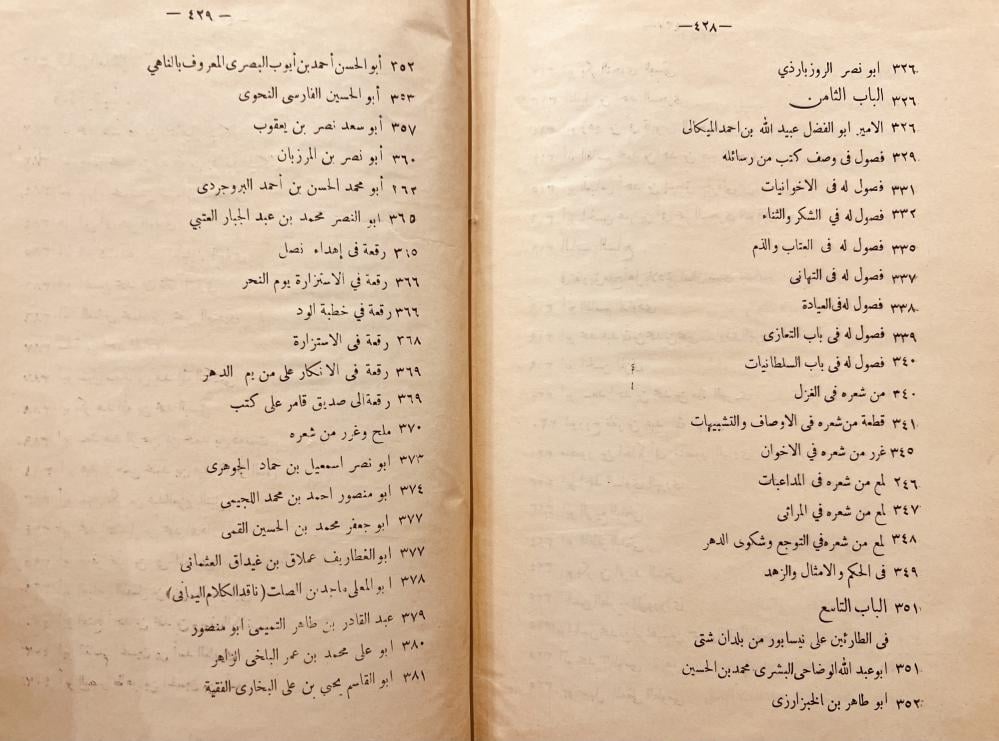 —٤٢٨—
٣٢٦ ابو نصر الروزبارذي
٣٢٦ الباب الثامن
٣٢٦ الامير ابو الفضل عبيد الله بن احمد الميكالى
٣٢٩ فصول فى وصف كتب من رسائله
٣٣١ فصول له فى الاخوانيات
٣٣٢ فصول له في الشكر والثناء
٣٣٥ فصول له فى العتاب والذم
٣٣٧ فصول له فى التهانى
٣٣٨ فصول له فى العيادة
٣٣٩ فصول له فى باب التعازى
٣٤٠ فصول له فى باب السلطانيات
٣٤٠ من شعره فى الغزل
٣٤١ قطعة من شعره فى الاوصاف والتشبيهات
٣٤٥ غرر من شعره في الاخوان
٢٤٦ لمع من شعره فى المداعبات
٣٤٧ لمع من شعره في المراثى
٣٤٨ لمع من شعره في التوجع وشكوى الدهر
٣٤٩ فى الحكم والامثال والزهد
٣٥١ الباب التاسع
فى الطارئين على نيسابور من بلدان شتى
٣٥١ ابو عبد الله الوضاحى البشرى محمد بن الحسين
٣٥٢ ابو طاهر بن الخبزارزى
— ٤٢٩ —
٣٥٢ أبو الحسن أحمد بن أيوب البصرى المعروف بالناهي
٣٥٣ أبو الحسين الفارسى النحوى
٣٥٧ أبو سعد نصر بن يعقوب
٣٦٠ أبو نصر بن المرزبان
٢٦٢ أبو محمد الحسن بن أحمد البروجردى
٣٦٥ ابو النصر محمد بن عبد الجبار العتبي
٣٦٥ رقعة فى إهداء نصل
٣٦٦ رقعة في الاستزارة يوم النحر
٣٦٦ رقعة في خطبة الود
٣٦٨ رقعة فى الاستزارة
٣٦٩ رقعة فى الانكار على من يم الدهر
٣٦٩ رقعة الى صديق قامر على كتب
٣٧٠ ملح وغرر من شعره
٣٧٣ ابو نصر اسمعيل بن حماد الجوهرى
٣٧٤ ابو منصور احمد بن محمد اللجيمى
٣٧٧ ابو جعفر محمد بن الحسين القمى
٣٧٧ ابو الغطاريف عملاق بن غيداق العثمانى
٣٧٨ ابو المعلى ماجد بن الصلت (ناقد الكلام اليمانى)
٣٧٩ عبد القادر بن طاهر التميمى ابو منصور
٣٨٠ ابو على محمد بن عمر البلخى الزاهر
٣٨١ ابو القاسم يحيى بن على البخارى الفقية